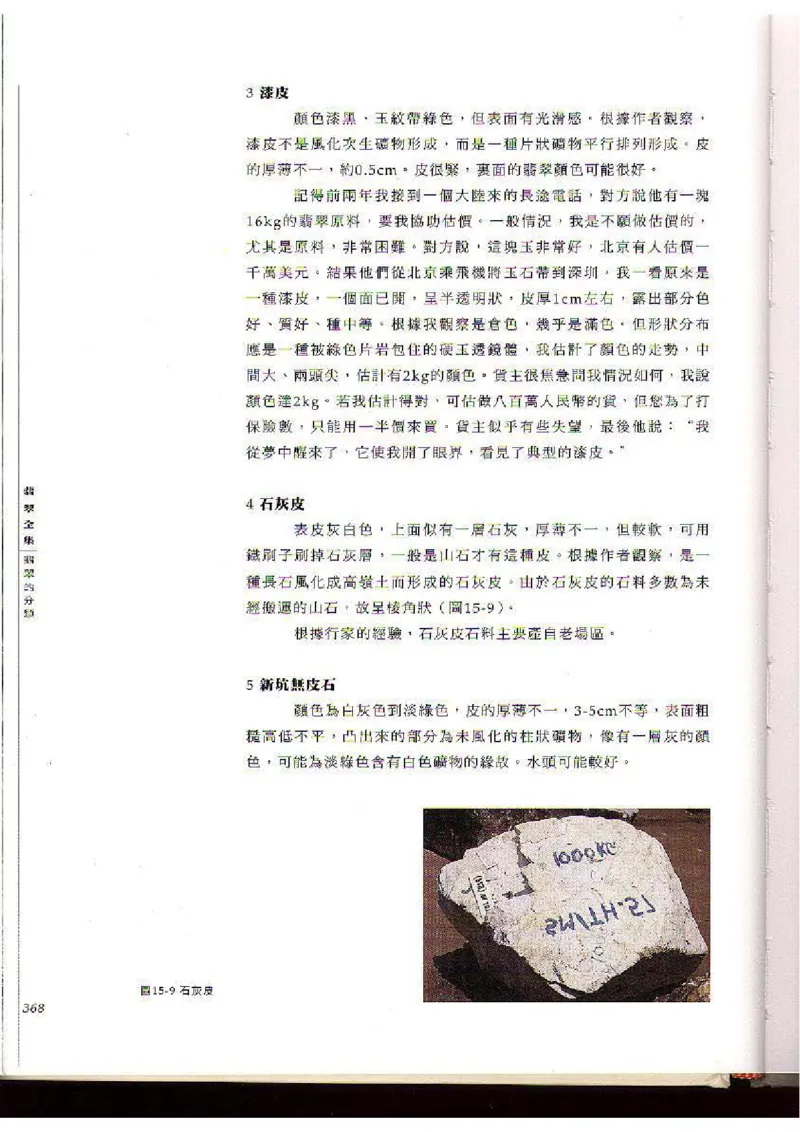 3 漆皮
顏色漆黑、玉紋帶綠色，但表面有光滑感。根據作者觀察，
漆皮不是風化次生礦物形成，而是一種片狀礦物平行排列形成。皮
的厚薄不一，約0.5cm。皮很緊，裏面的翡翠顏色可能很好。
記得前兩年我接到一個大陸來的長途電話，對方說他有一塊
16kg的翡翠原料，要我協助估價。一般情況，我是不願做估價的，
尤其是原料，非常困難。對方說，這塊玉非常好，北京有人估價一
千萬美元。結果他們從北京乘飛機將玉石帶到深圳，我一看原來是
一種漆皮，一個面已開，呈半透明狀，皮厚1cm左右，露出部分色
好、質好、種中等。根據我觀察是倉色，幾乎是滿色。但形狀分布
應是一種被綠色片岩包住的硬玉透鏡體，我估計了顏色的走勢，中
間大、兩頭尖，估計有2kg的顏色。貨主很焦急問我情況如何，我說
顏色達2kg。若我估計得對，可估做八百萬人民幣的貨，但您為了打
保險數，只能用一半價來買。貨主似乎有些失望，最後他說："我
從夢中醒來了，它使我開了眼界，看見了典型的漆皮。"
4 石灰皮
表皮灰白色，上面似有一層石灰，厚薄不一，但較軟，可用
鐵刷子刷掉石灰層，一般是山石才有這種皮。根據作者觀察，是一
種長石風化成高嶺土而形成的石灰皮。由於石灰皮的石料多數為未
經搬運的山石，故呈棱角狀（圖15-9）。
根據行家的經驗，石灰皮石料主要產自老場區。
5 新坑無皮石
顏色為白灰色到淡綠色，皮的厚薄不一，3-5cm不等，表面粗
糙高低不平，凸出來的部分為未風化的柱狀礦物，像有一層灰的顏
色，可能為淡綠色含有白色礦物的緣故。水頭可能較好。
翡翠全集
翡翠的分類
1000KG
圖15-9 石灰皮
368